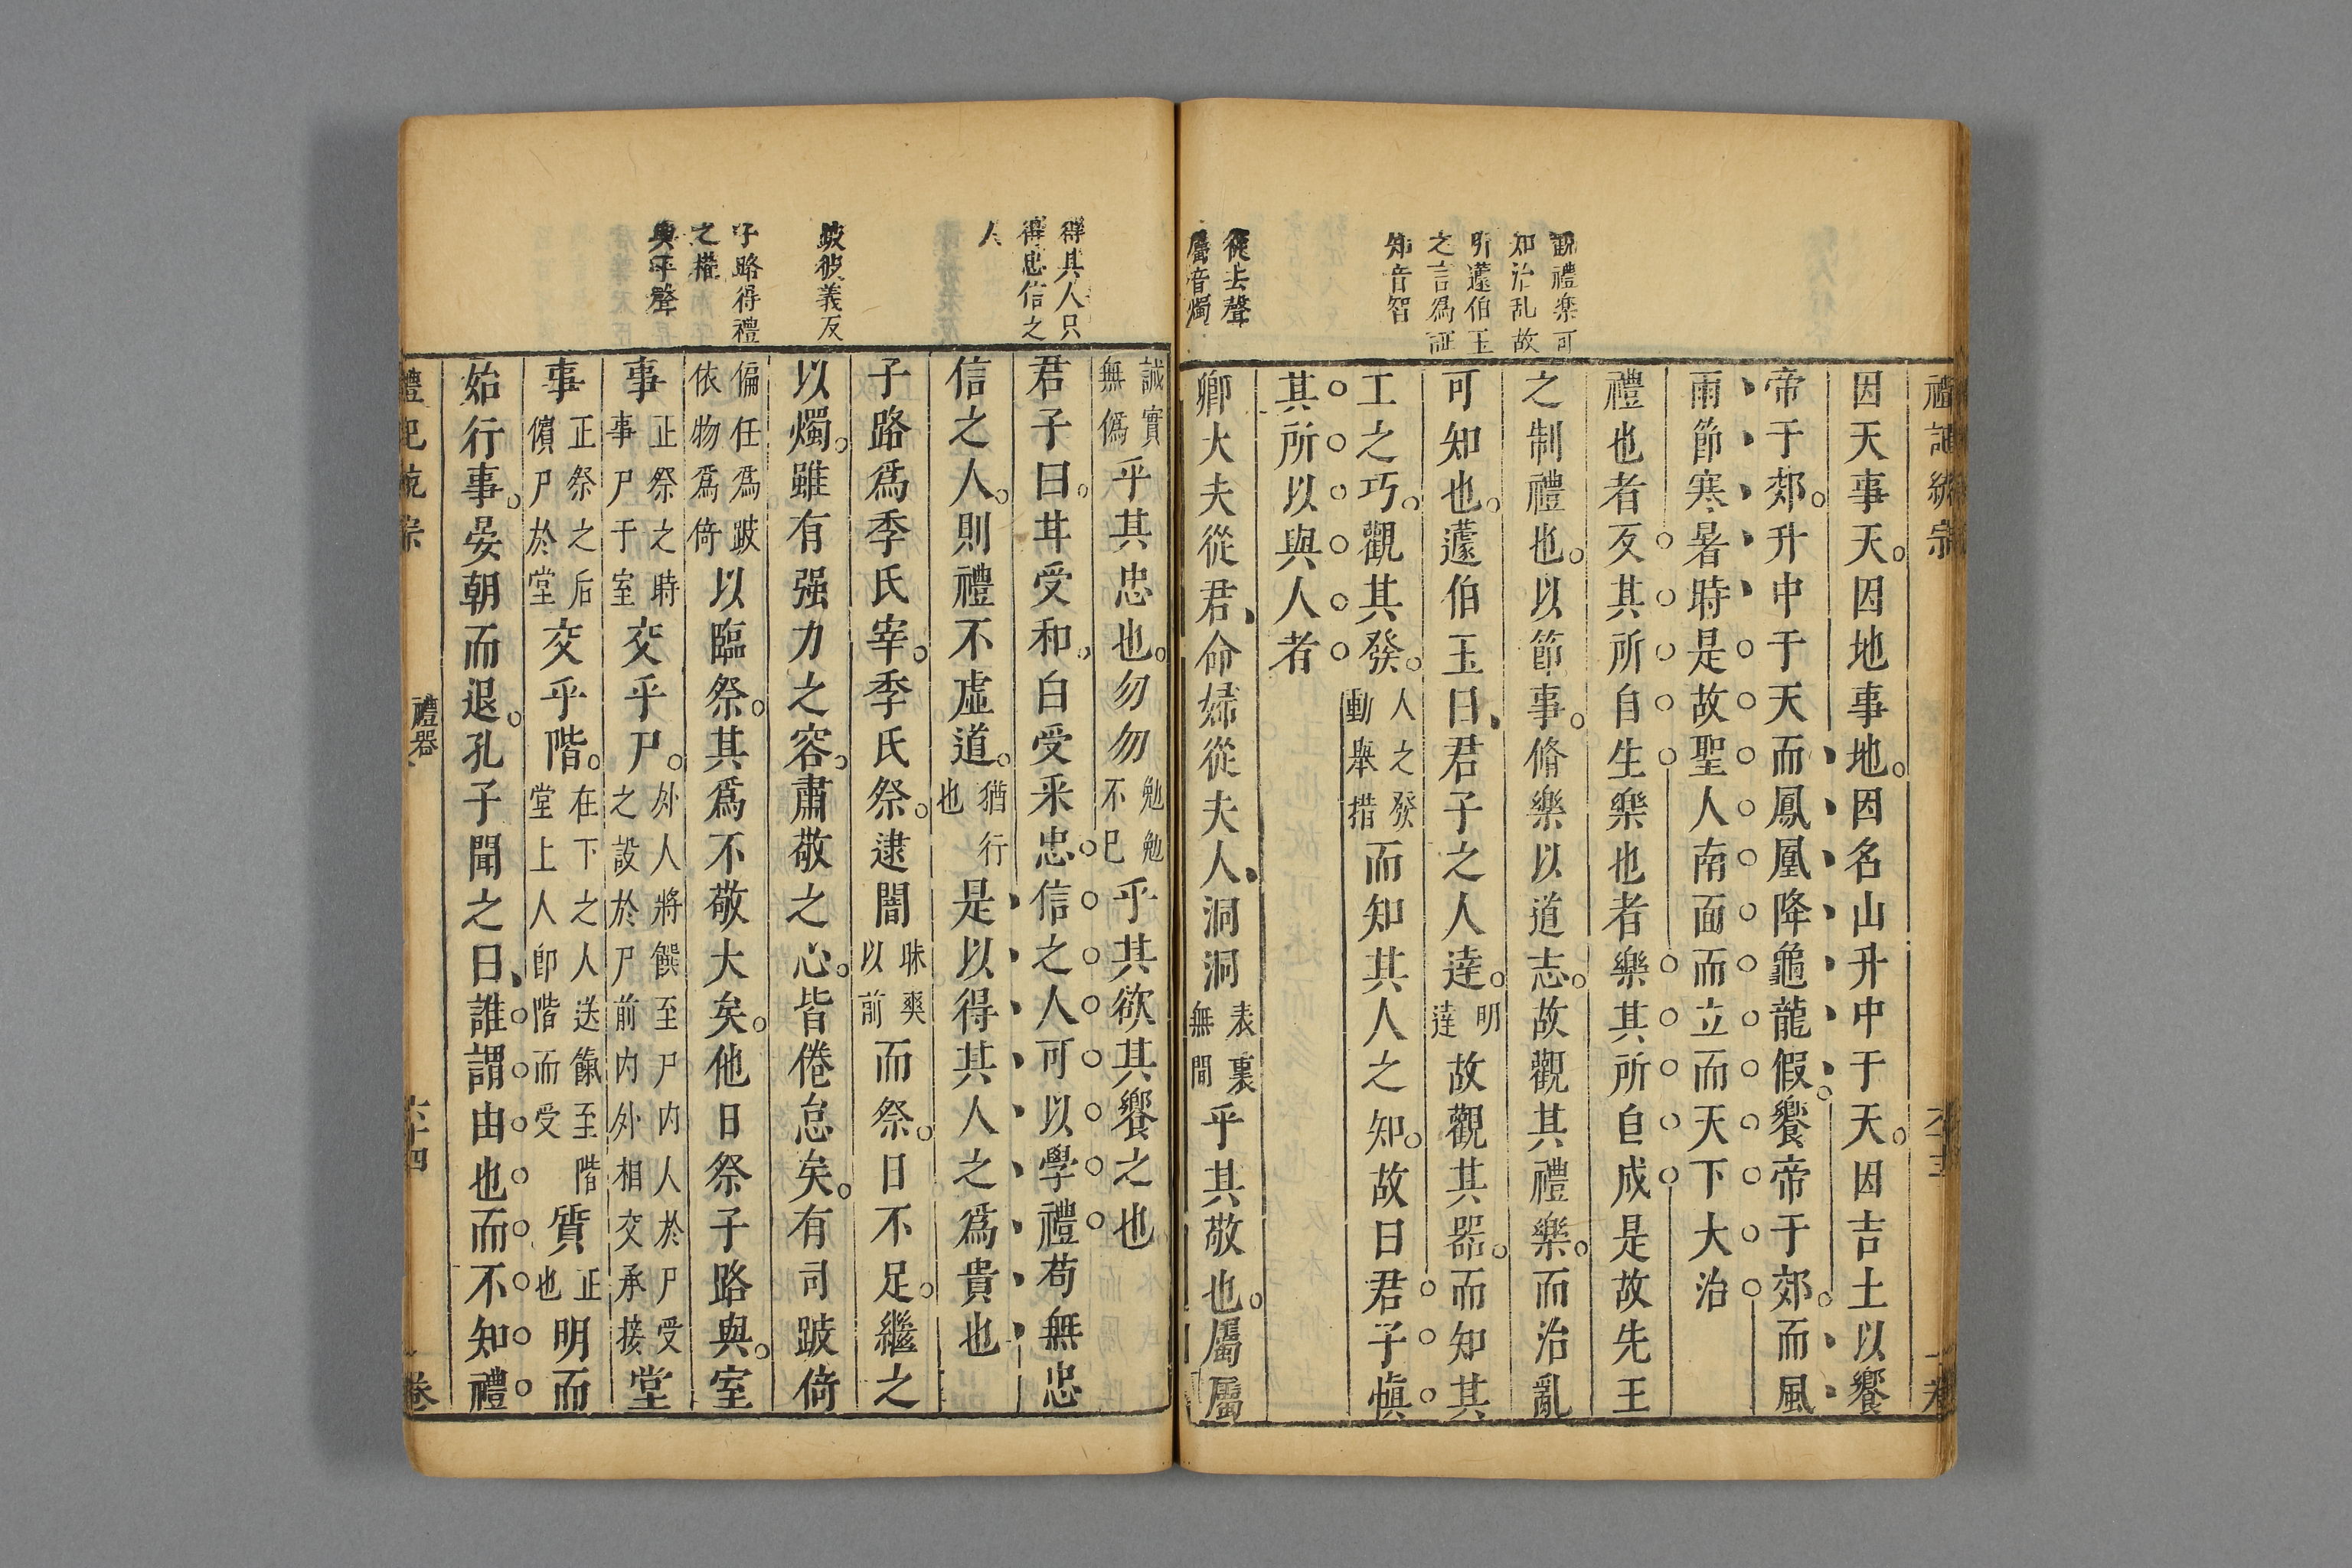 觀禮樂可
知治乱故
引蘧伯玉
之言為証
知音智
從去聲
屬音燭
禮記統宗
因天事天。因地事地。因名山升中于天。因吉土以饗
帝于郊。升中于天而鳳凰降龜龍假。饗帝于郊。而風
雨節寒暑時是故聖人南面而立而天下大治
禮也者反其所自生樂也者樂其所自成是故先王
之制禮也。以節事。脩樂以道志。故觀其禮樂。而治亂
可知也。蘧伯玉曰、君子之人達。明達故觀其器。而知其
工之巧。觀其發。人之發動舉措而知其人之知。故曰君子慎
其所以與人者
卿大夫從君、命婦從夫人、洞洞表裏無間乎其敬也。屬屬
得其人只
得忠信之
人
跛彼義反
子路得禮
之權
與平聲
誠實無偽乎其忠也。勿勿勉勉不已乎其欲其饗之也
君子曰。甘受和。白受采忠信之人可以學禮苟無忠
信之人。則禮不虛道。猶行也是以得其人之為貴也
子路爲季氏宰。季氏祭。逮闇昧爽以前而祭。日不足。繼之
以燭。雖有强力之容。肅敬之心。皆倦怠矣。有司跛倚
偏任爲跛依物爲倚以臨祭。其爲不敬大矣。他日祭子路與。室
事正祭之時事尸于室交乎尸。外人將饌至尸内人於尸受之設於尸前内外相交承接堂
事正祭之后儐尸於堂交乎階。在下之人送餼至階堂上人即階而受質正也明而
始行事。晏朝而退。孔子聞之曰、誰謂由也而不知禮
禮記統宗
禮器
六十四
卷